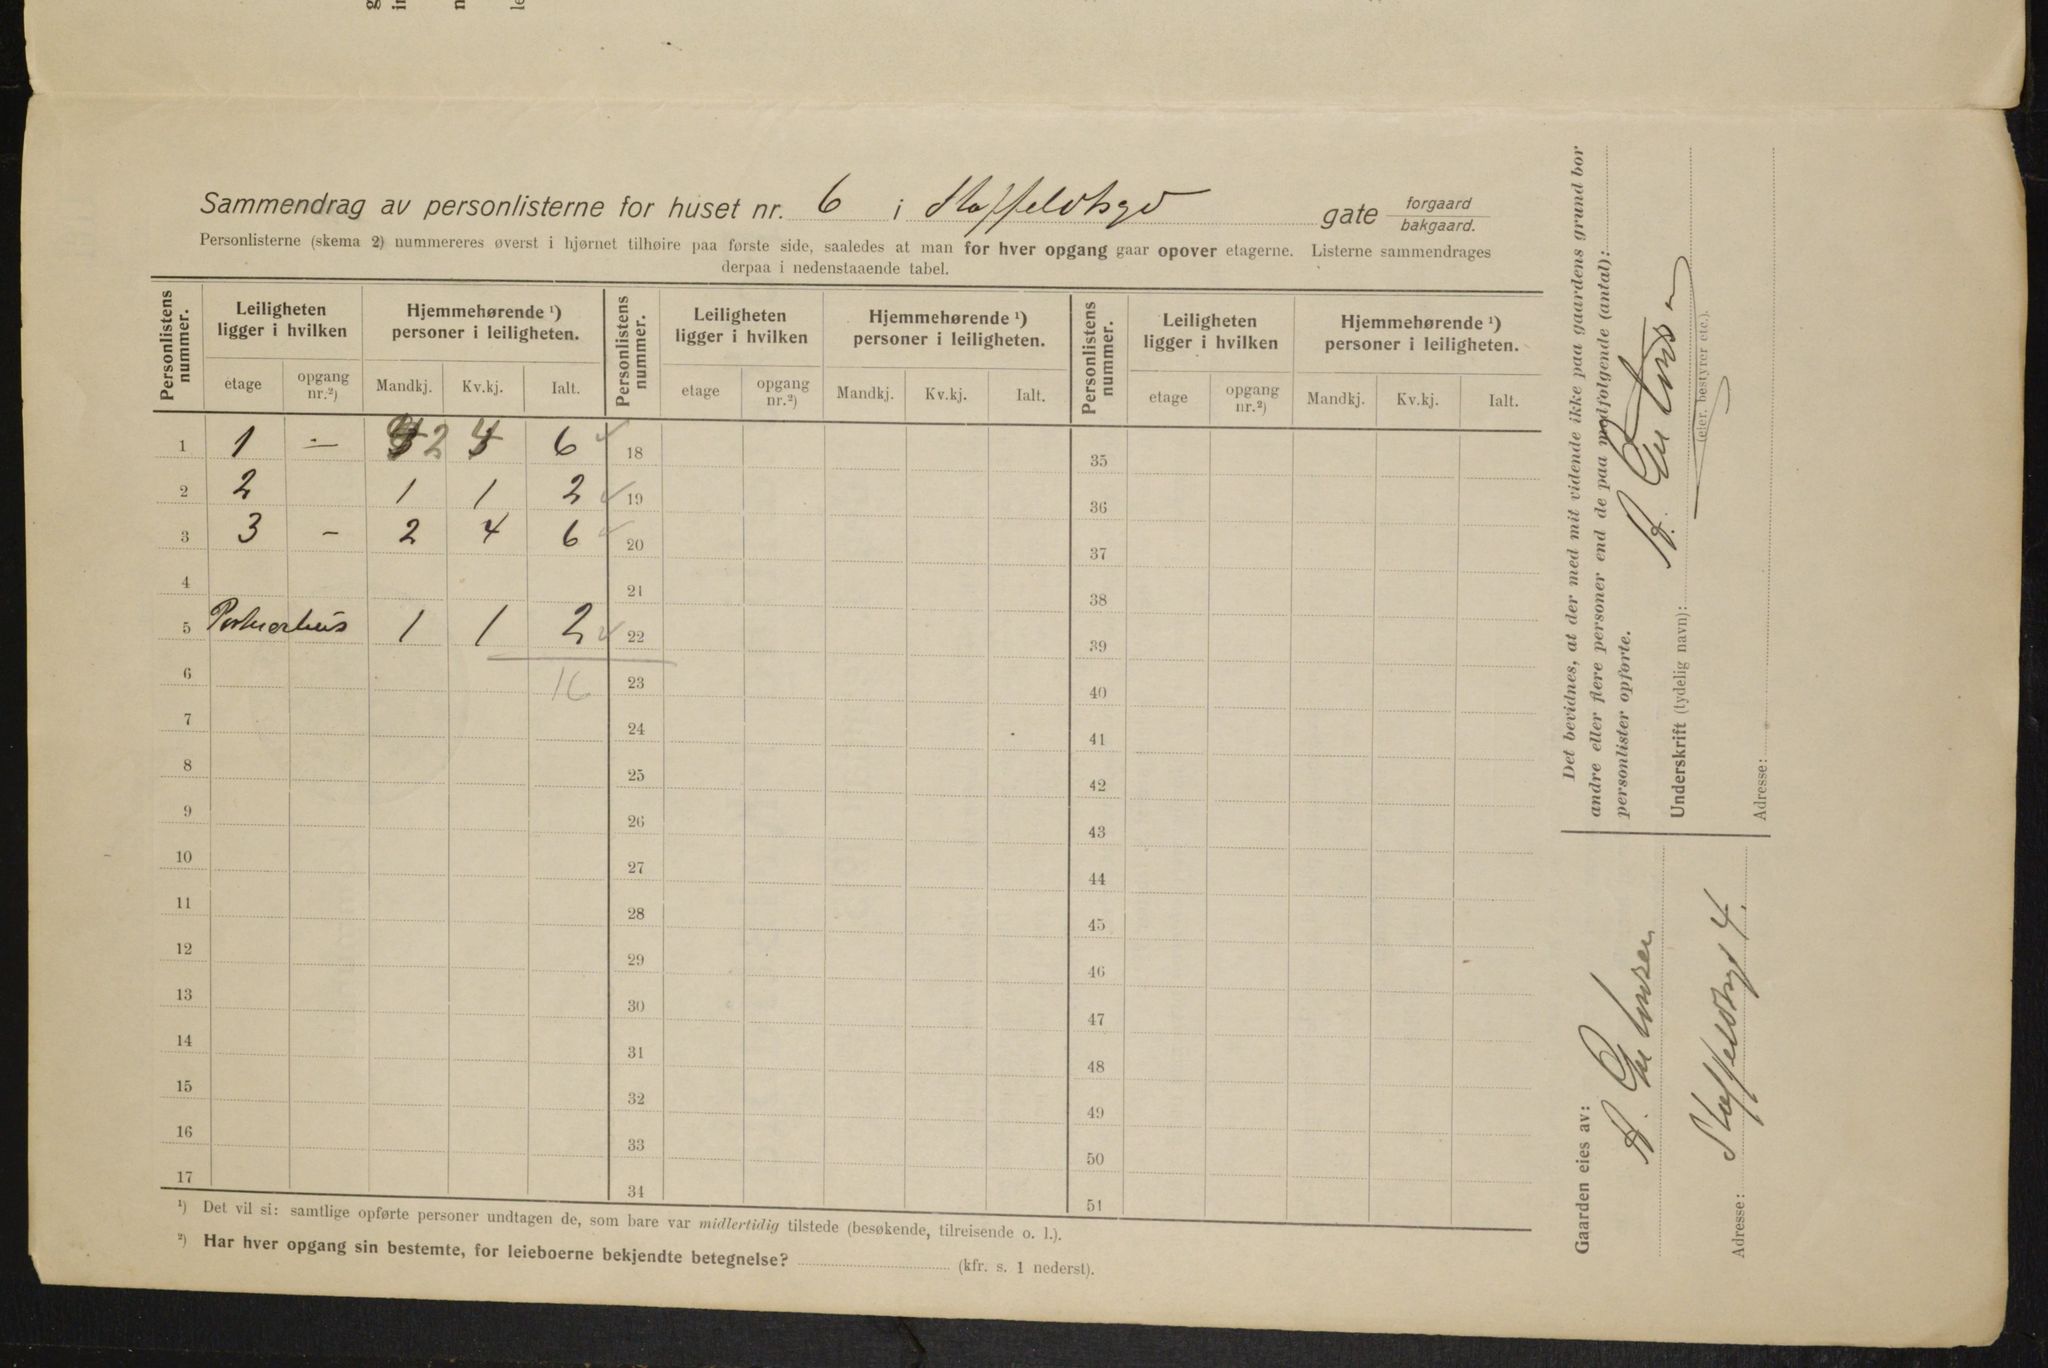 Sammendrag av personlisterne for huset nr. 6 i Staffeldtsgd gate forgaard bakgaard.
Personlisterne (skema 2) nummereres øverst i hjørnet tilhøire paa første side, saaledes at man for hver opgang gaar opover etagerne. Listerne sammendrages
derpaa i nedenstaaende tabel.
Personlistens nummer. Leiligheten ligger i hvilken Hjemmehørende ¹) personer i leiligheten. Personlistens nummer. Leiligheten ligger i hvilken Hjemmehørende ¹) personer i leiligheten. Personlistens nummer. Leiligheten ligger i hvilken Hjemmehørende ¹) personer i leiligheten.
etage opgang nr.²) Mandkj. Kv.kj. Ialt. etage opgang nr.²) Mandkj. Kv.kj. Ialt. etage opgang nr.²) Mandkj. Kv.kj. Ialt.
1 1 – 2 4 6 18 35
2 2 1 1 2 19 36
3 3 – 2 4 6 20 37
4 21 38
5 Portnerhus 1 1 2 22 39
6 16 23 40
7 24 41
8 25 42
9 26 43
10 27 44
11 28 45
12 29 46
13 30 47
14 31 48
15 32 49
16 33 50
17 34 51
¹) Det vil si: samtlige opførte personer undtagen de, som bare var midlertidig tilstede (besøkende, tilreisende o. l.).
²) Har hver opgang sin bestemte, for leieboerne bekjendte betegnelse? (kfr. s. 1 nederst).
Det bevidnes, at der med mit vidende ikke paa gaardens grund bor
andre eller flere personer end de paa medfolgende (antal):
personlister opforte.
Underskrift (tydelig navn):
(eier, bestyrer etc.).
Adresse:
Gaarden eies av:
Adresse: Staffeldtsgd 4.